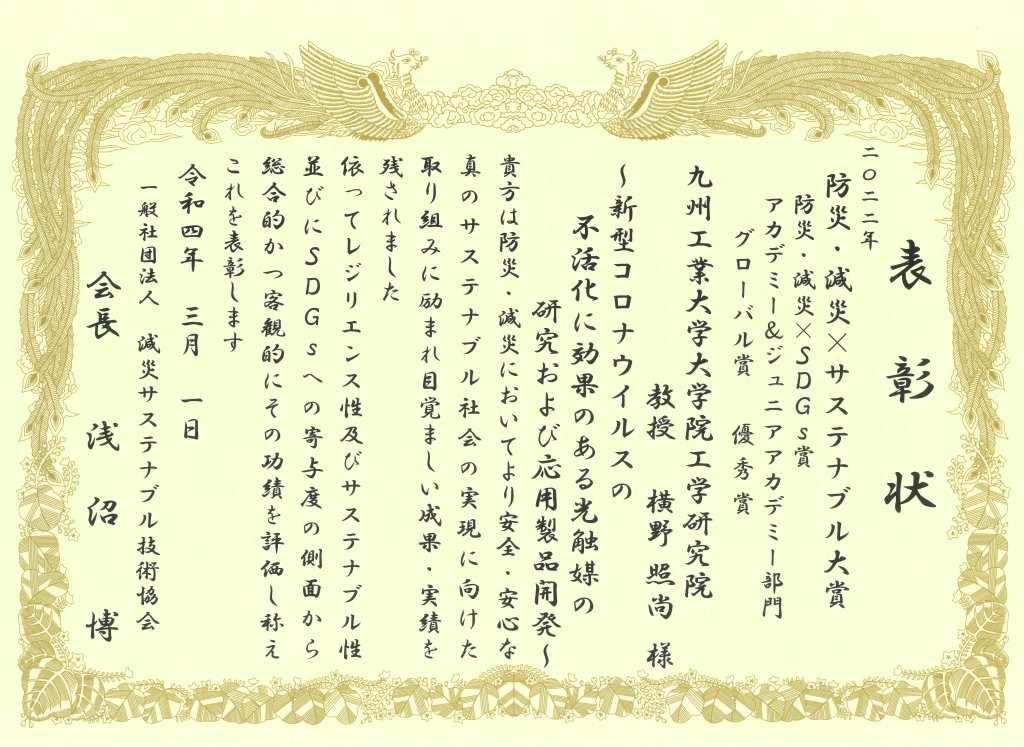 表彰状
二〇二二年
防災・減災×サステナブル大賞
防災・減災×SDGs賞
アカデミー&ジュニアアカデミー部門
グローバル賞 優秀賞
九州工業大学大学院工学研究院
教授 横野照尚 様
～新型コロナウイルスの
不活化に効果のある光触媒の
研究および応用製品開発～
貴方は防災・減災においてより安全・安心な
真のサステナブル社会の実現に向けた
取り組みに励まれ目覚ましい成果・実績を
残されました
依ってレジリエンス性及びサステナブル性
並びにSDGsへの寄与度の側面から
総合的かつ客観的にその功績を評価し称え
これを表彰します
令和四年 三月 一日
一般社団法人 減災サステナブル技術協会
会長 浅沼博